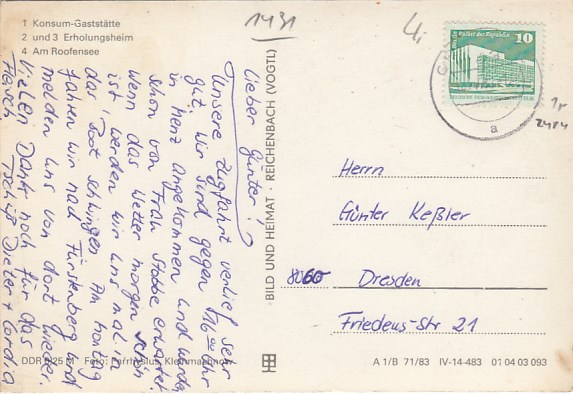 1 Konsum-Gaststätte
2 und 3 Erholungsheim
4 Am Roofensee
1431
Lieber Günter!
Unsere Zugfahrt verlief sehr
gut, wir sind gegen 1/2 16 00 Uhr
in Menz angekommen und wurden
schon von Frau Stabe erwartet.
Wenn das Wetter morgen schön
ist, werden wir uns mal in
das Boot schwingen. Am Montag
fahren wir nach Fürstenberg und
melden uns von dort wieder.
Vielen Dank noch für das
Tschüß Dieter + Cordia
BILD UND HEIMAT · REICHENBACH (VOGTL)
Palast der Republik
10
a
2484
Herrn
Günter Keßler
8060 Dresden
Friedens-Str 21
DDR 0,25 M Foto:
A 1/B 71/83 IV-14-483 01 04 03 093